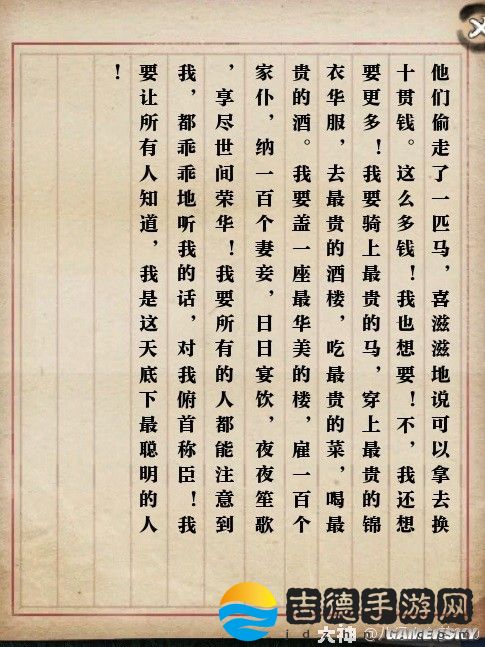 他们偷走了一匹马，喜滋滋地说可以拿去换
十贯钱。这么多钱！我也想要！不，我还想
要更多！我要骑上最贵的马，穿上最贵的锦
衣华服，去最贵的酒楼，吃最贵的菜，喝最
贵的酒。我要盖一座最华美的楼，雇一百个
家仆，纳一百个妻妾，日日宴饮，夜夜笙歌
，享尽世间荣华！我要所有的人都能注意到
我，都乖乖地听我的话，对我俯首称臣！我
要让所有人知道，我是这天底下最聪明的人
！
吉德手游网
大神
GAMERSKY